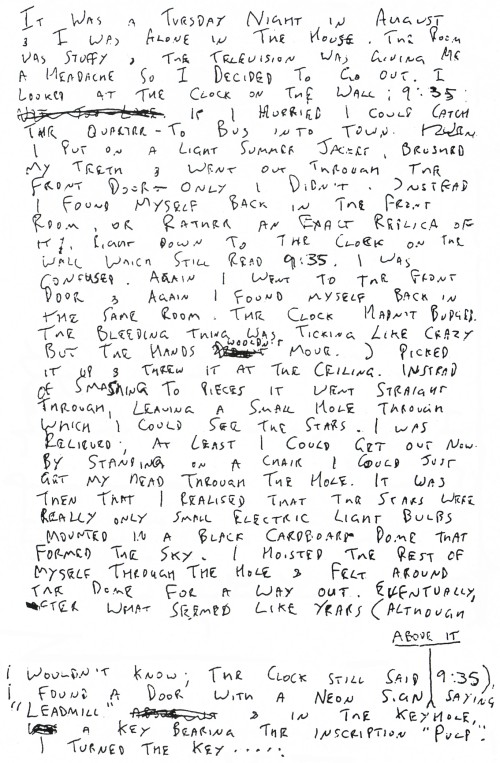 IT WAS A TUESDAY NIGHT IN AUGUST
& I WAS ALONE IN THE HOUSE. THE ROOM
WAS STUFFY & THE TELEVISION WAS GIVING ME
A HEADACHE SO I DECIDED TO GO OUT. I
LOOKED AT THE CLOCK ON THE WALL; 9:35:
IF I HURRIED I COULD CATCH
THE QUARTER-TO BUS INTO TOWN.
I PUT ON A LIGHT SUMMER JACKET, BRUSHED
MY TEETH & WENT OUT THROUGH THE
FRONT DOOR - ONLY I DIDN'T. INSTEAD
I FOUND MYSELF BACK IN THE FRONT
ROOM, OR RATHER AN EXACT REPLICA OF
IT, RIGHT DOWN TO THE CLOCK ON THE
WALL WHICH STILL READ 9:35. I WAS
CONFUSED. AGAIN I WENT TO THE FRONT
DOOR & AGAIN I FOUND MYSELF BACK IN
THE SAME ROOM. THE CLOCK HADN'T BUDGED.
THE BLEEDING THING WAS TICKING LIKE CRAZY
BUT THE HANDS WOULDN'T MOVE. I PICKED
IT UP & THREW IT AT THE CEILING. INSTEAD
OF SMASHING TO PIECES IT WENT STRAIGHT
THROUGH, LEAVING A SMALL HOLE THROUGH
WHICH I COULD SEE THE STARS. I WAS
RELIEVED; AT LEAST I COULD GET OUT NOW.
BY STANDING ON A CHAIR I COULD JUST
GET MY HEAD THROUGH THE HOLE. IT WAS
THEN THAT I REALISED THAT THE STARS WERE
REALLY ONLY SMALL ELECTRIC LIGHT BULBS
MOUNTED IN A BLACK CARDBOARD DOME THAT
FORMED THE SKY. I HOISTED THE REST OF
MYSELF THROUGH THE HOLE & FELT AROUND
THE DOME FOR A WAY OUT. EVENTUALLY,
AFTER WHAT SEEMED LIKE YEARS (ALTHOUGH
I WOULDN'T KNOW; THE CLOCK STILL SAID 9:35),
I FOUND A DOOR WITH A NEON SIGN SAYING
"LEADMILL" ABOVE IT & IN THE KEYHOLE,
A KEY BEARING THE INSCRIPTION "PULP".
I TURNED THE KEY.....